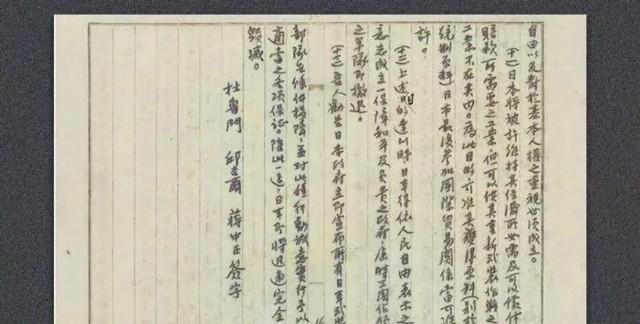 自由以及對於基本人權之重視必須成立。
(十一)日本將被許維持其經濟所必需及可以償付
賠款所需要之工業,但可以使其重新武裝作戰之
工業不在其內。為此目的,可准其獲得原料(別於
統制原料)日本最後參加國際貿易關係當可准
許。
(十二)上述目的達到時日本得依人民自由表示之
意志成立一保障和平及負責之政府,屆時三國佔領
之軍隊即撤退。
(十三)吾人勸告日本政府立即宣布所有日本武裝
部隊無條件投降,並對此種行動誠意實行予以
適當之各項保證。除此一途,日本即將迅速完全
毀滅。
杜魯門 邱吉爾 蔣中正 簽字